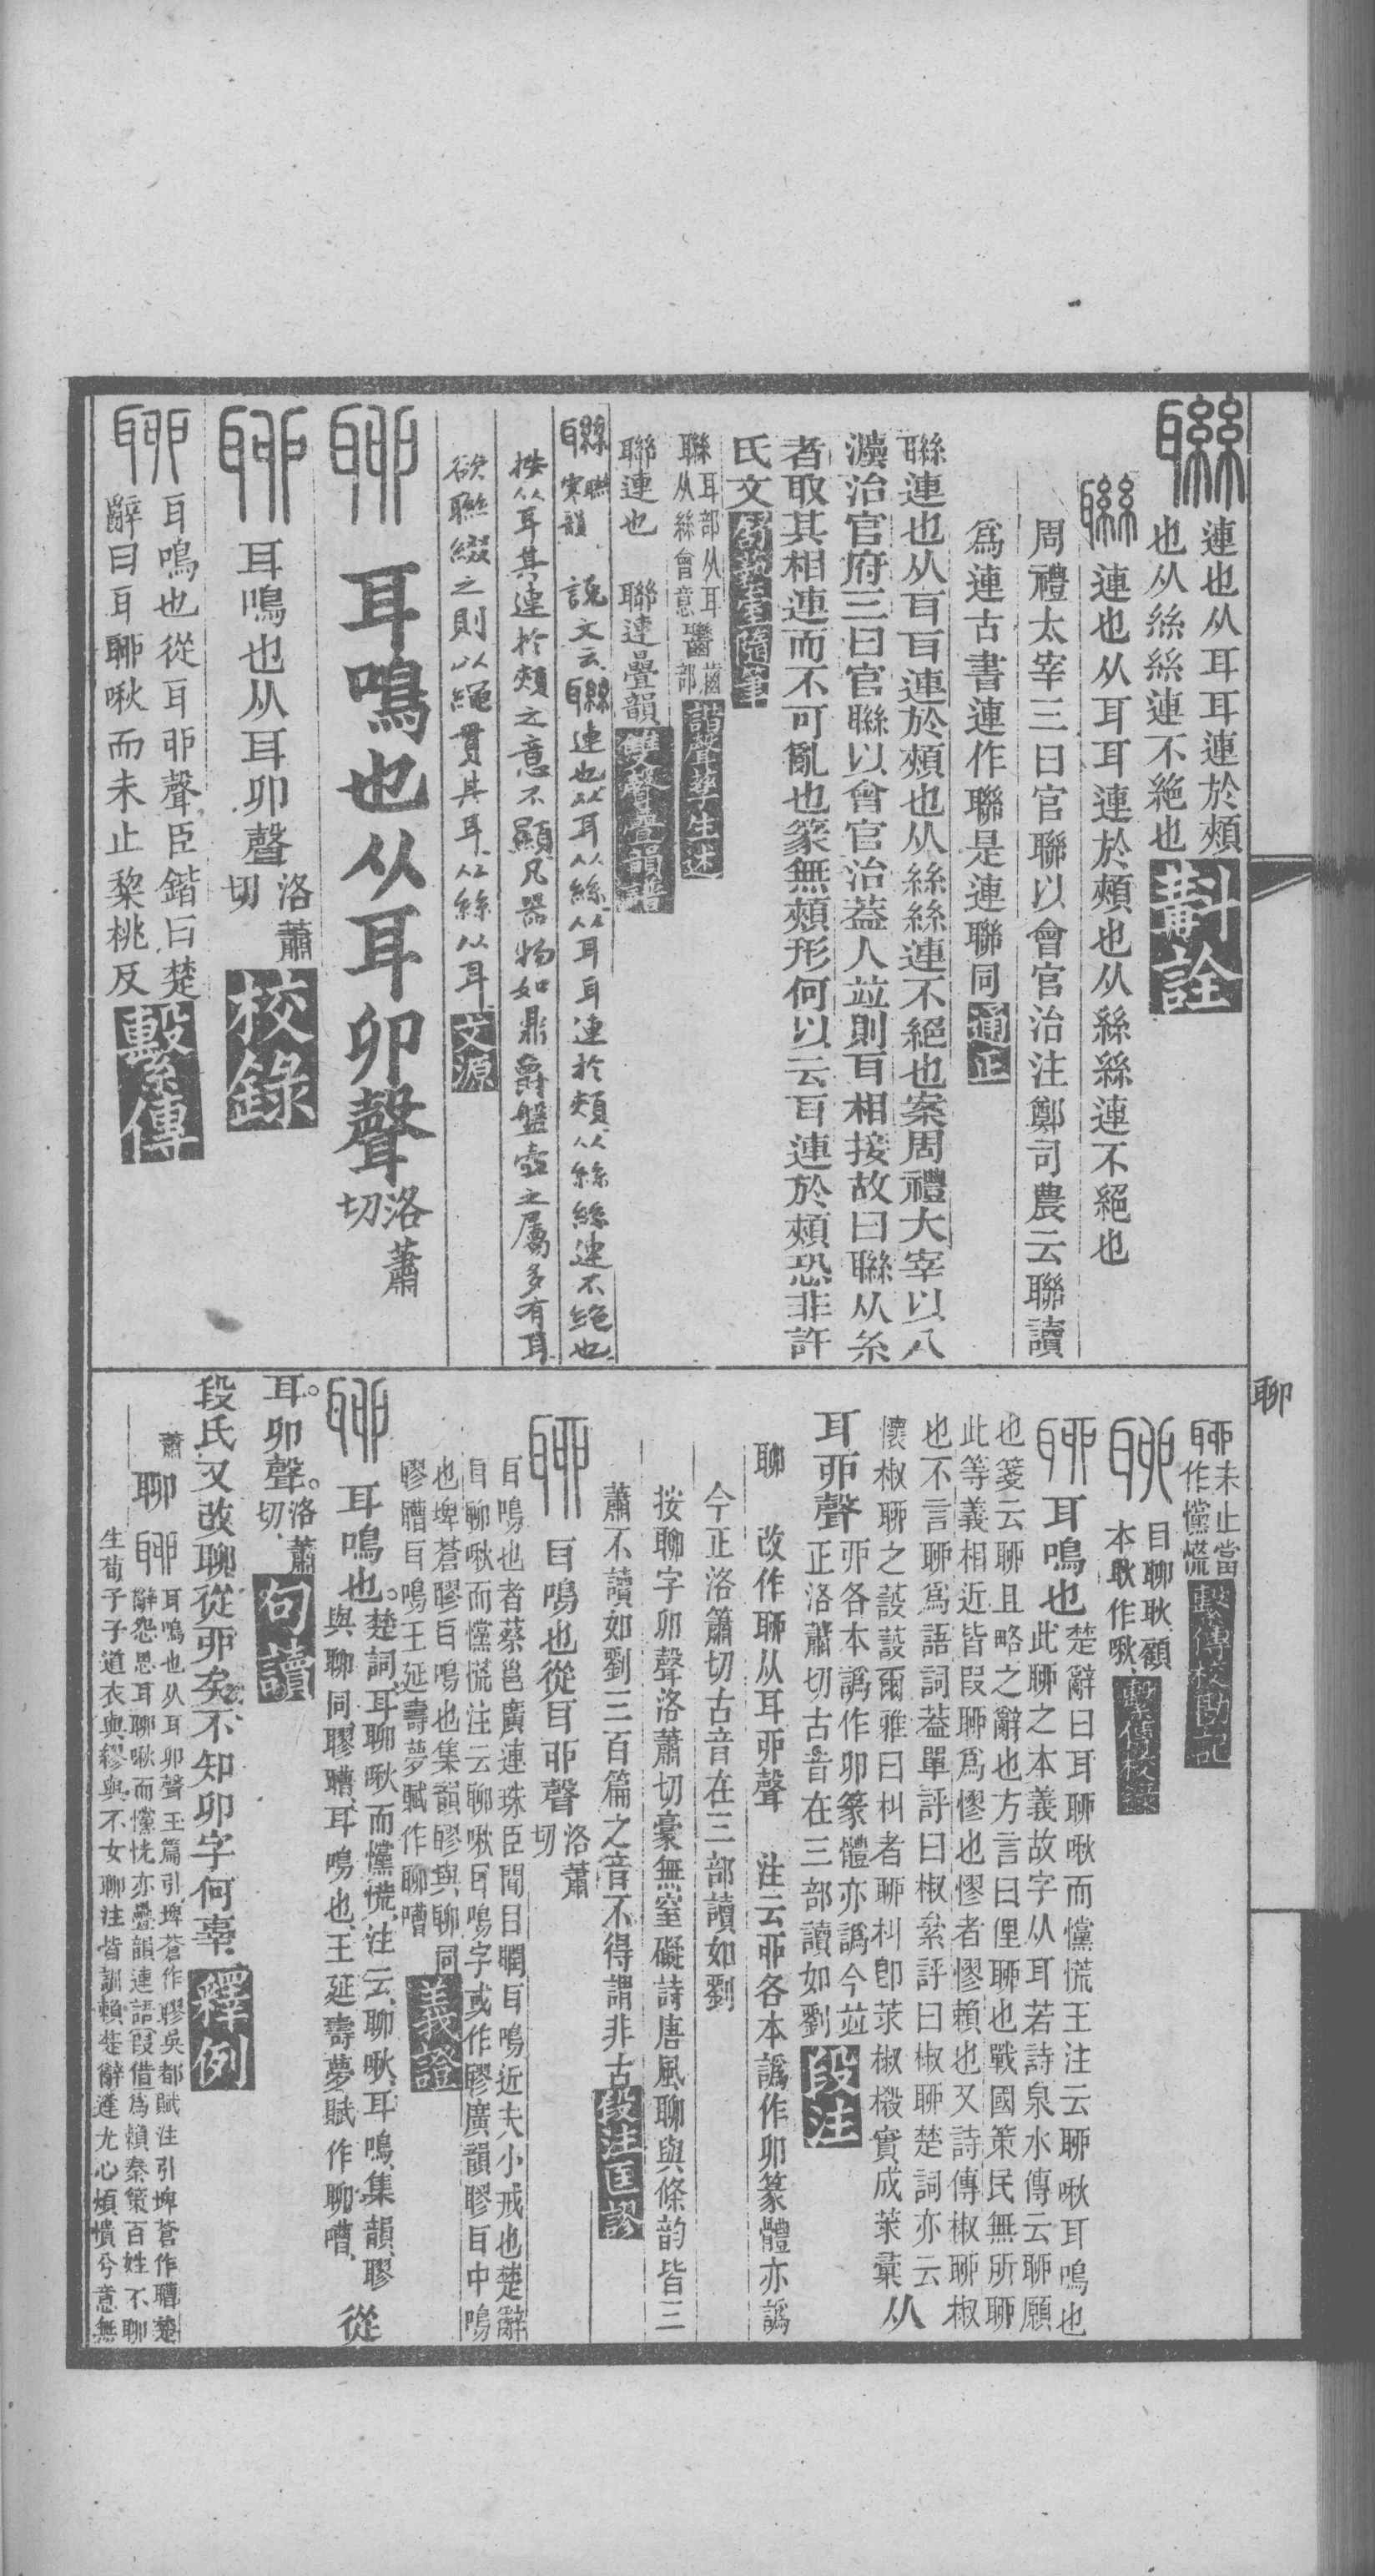 聯 連也从耳耳連於頰
也从絲絲連不絶也 斠詮
聯 連也从耳耳連於頰也从絲絲連不絕也
周禮太宰三曰官聯以會官治注鄭司農云聯讀
爲連古書連作聯是連聯同 通正
聯連也从耳耳連於頰也从絲絲連不絕也案周禮大宰以八
灋治官府三曰官聯以會官治蓋人竝則耳相接故曰聯从糸
者取其相連而不可亂也篆無頰形何以云耳連於頰恐非許
氏文
聯 耳部从耳
从絲會意 諧聲孳生述
聯連也 聯連疊韻 雙聲疊韻譜
聯 寒韻 說文云聯連也从耳从絲从耳耳連於頰从絲絲連不絕也
按从耳其連於頰之意不顯凡器物如鼎爵盤壺之屬多有耳
欲聯綴之則以繩貫其耳从絲从耳 文源
聊 耳鳴也从耳卯聲 洛蕭切
聊 耳鳴也从耳卯聲 洛蕭切 校錄
聊 耳鳴也從耳丣聲臣鍇曰楚
辭曰耳聊啾而未止黎桃反 繫傳
聊
聊 未止當
作戃慌 繫傳校勘記
聊 目聊耿顧
本耿作啾 繫傳校錄
聊 耳鳴也 楚辭曰耳聊啾而戃慌王注云聊啾耳鳴也
此聊之本義故字从耳若詩泉水傳云聊願
也箋云聊且略之辭也方言曰俚聊也戰國策民無所聊
此等義相近皆叚聊爲憀也憀者憀賴也又詩傳椒聊椒
也不言聊爲語詞葢單評曰椒絫評曰椒聊楚詞亦云
懷椒聊之蔎蔎爾雅曰朻者聊朻卽莍椒樧實成莱彙 从
耳丣聲 丣各本譌作卯篆體亦譌今竝
正洛蕭切古音在三部讀如劉 段注
聊 改作聊从耳丣聲 注云丣各本譌作卯篆體亦譌
今正洛簫切古音在三部讀如劉
按聊字卯聲洛蕭切豪無窒礙詩唐風聊與條韵皆三
蕭不讀如劉三百篇之音不得謂非古 段注匡謬
聊 耳鳴也從耳丣聲 洛蕭切
耳鳴也者蔡邕廣連珠臣聞目瞤耳鳴近夫小戒也楚辭
耳聊啾而戃慌注云聊啾耳鳴字或作膠廣韻膠耳中鳴
也埤蒼膠耳鳴也集韻膠與聊同
膠聸耳鳴王延壽夢賦作聊嘈 義證
聊 耳鳴也。楚詞耳聊啾而戃慌注云聊啾耳鳴集韻膠
與聊同膠聸耳鳴也王延壽夢賦作聊嘈 從
耳。卯聲。洛蕭切 句讀
段氏又改聊從丣矣不知卯字何辜 釋例
蕭 聊 耳鳴也从耳卯聲玉篇引埤蒼作膠吳都賦注引埤蒼作聸楚
辭怨思耳聊啾而戃恍亦疊韻連語叚借爲賴秦策百姓不聊
生荀子子道衣與繆與不女聊注皆訓賴楚辭逢尤心煩憒兮意無